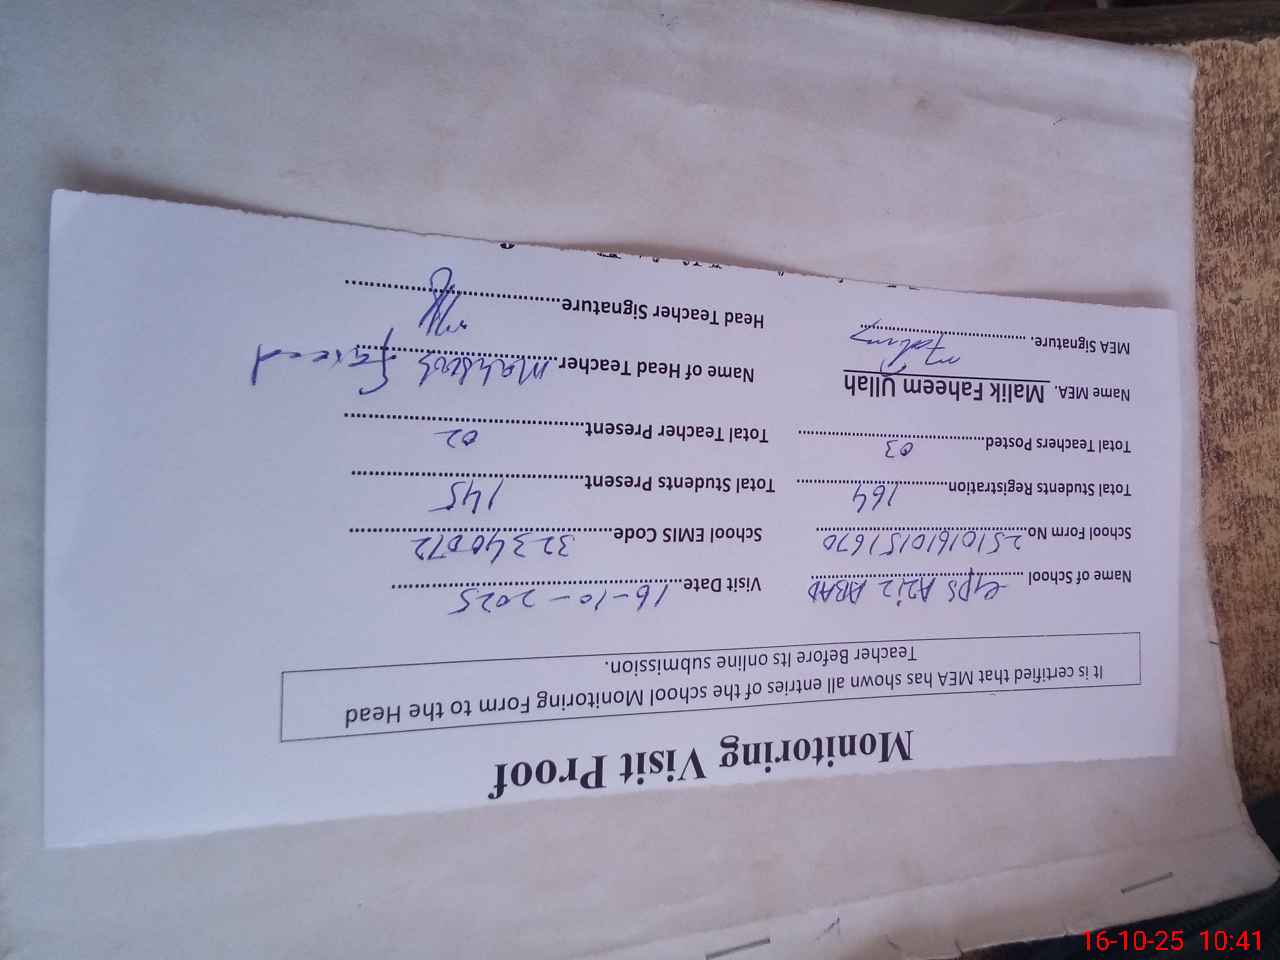 Monitoring Visit Proof
It is certified that MEA has shown all entries of the school Monitoring Form to the Head
Teacher Before Its online submission.
Name of School GPS Aziz ABAD Visit Date 16-10-2025
School Form No 25101610151670 School EMIS Code 32340072
Total Students Registration 164 Total Students Present 145
Total Teachers Posted 03 Total Teacher Present 02
Name MEA. Malik Faheem Ullah Name of Head Teacher Mahboob Fareed
MEA Signature. Head Teacher Signature
16-10-25 10:41